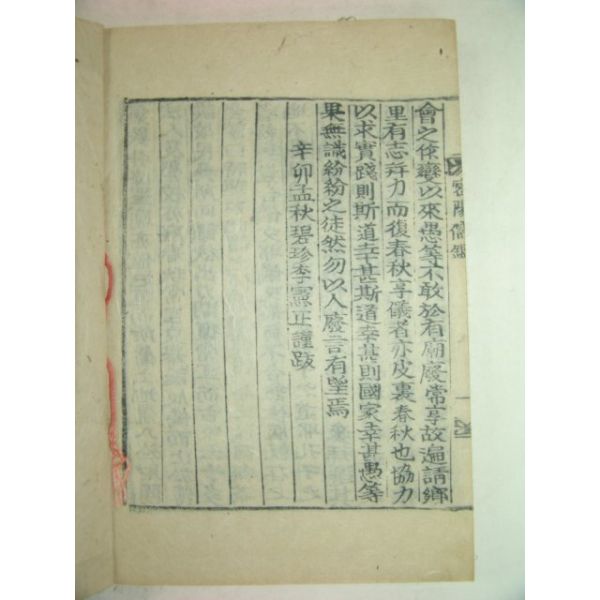 會之作變以來愚等不敢於有廟廢常享故遍請鄉
里有志幷力而復春秋享儀者亦皮裏春秋也協力
以求實踐則斯道幸甚斯道幸甚則國家幸甚愚等
果無識紛紛之徒然勿以人廢言有望焉
辛卯孟秋碧珍李憲正謹跋
密陽儒鑑